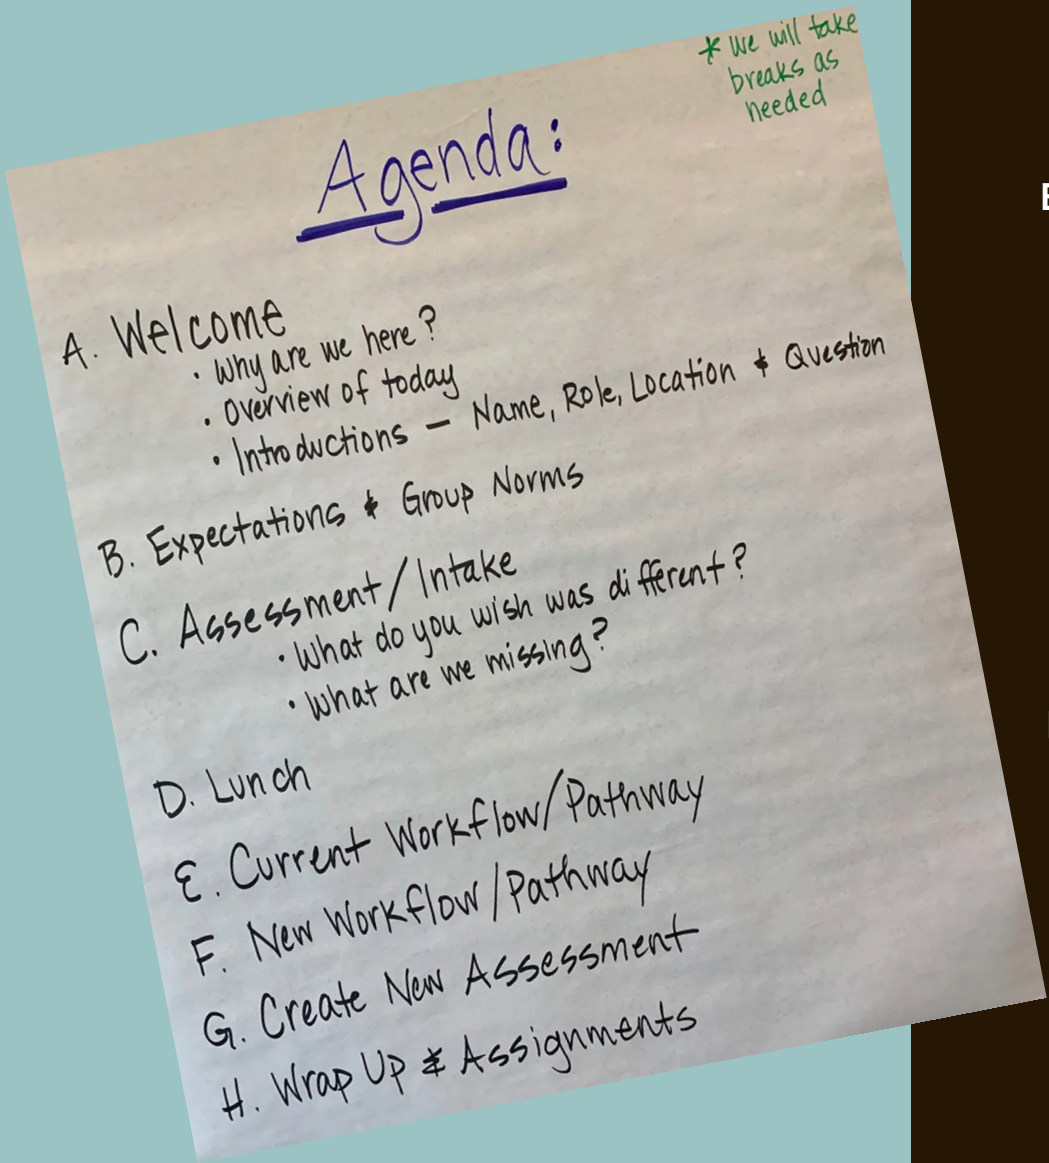 * We will take
breaks as
needed
Agenda:
A. Welcome
· Why are we here?
· Overview of today
· Introductions — Name, Role, Location & Question
B. Expectations & Group Norms
C. Assessment/Intake
· What do you wish was different?
· What are we missing?
D. Lunch
E. Current Workflow/Pathway
F. New Workflow/Pathway
G. Create New Assessment
H. Wrap Up & Assignments